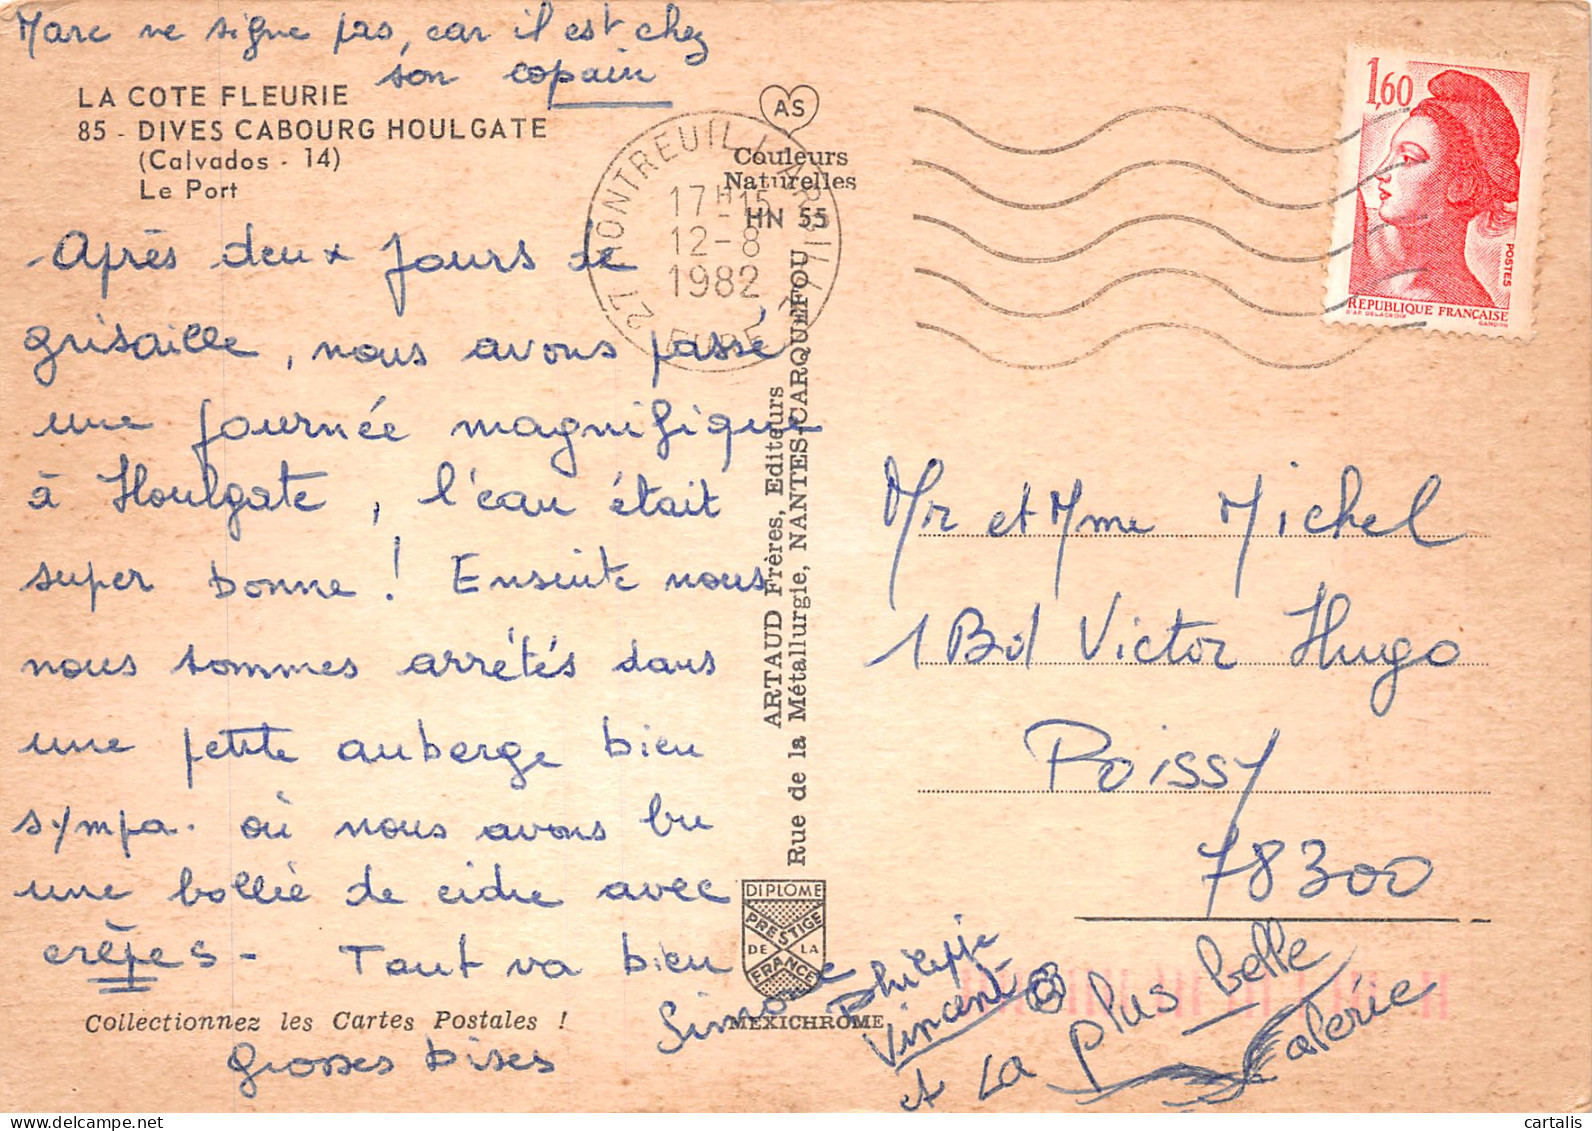 Marc ne signe pas, car il est chez
son copain
LA COTE FLEURIE
85 - DIVES CABOURG HOULGATE
(Calvados - 14)
Le Port
Après deux jours de
grisaille, nous avons passé
une journée magnifique
à Houlgate, l'eau était
super bonne! Ensuite nous
nous sommes arrêtés dans
une petite auberge bien
sympa. où nous avons bu
une bollée de cidre avec
crêpes - Tout va bien
Collectionnez les Cartes Postales !
Grosses bises
Simone
Philippe
Vincent
et La plus belle
Valérie
AS
Couleurs
Naturelles
HN 55
27 MONTREUIL L'ARGILLE
17H15
12-8
1982
EURE
ARTAUD Frères, Editeurs
Rue de la Métallurgie, NANTES-CARQUEFOU
DIPLOME
PRESTIGE
DE LA
FRANCE
MEXICHROME
1,60
POSTES
REPUBLIQUE FRANÇAISE
D'AP. DELACROIX
GANDON
Mr et Mme Michel
1 Bd Victor Hugo
Poissy
78300
cartalis